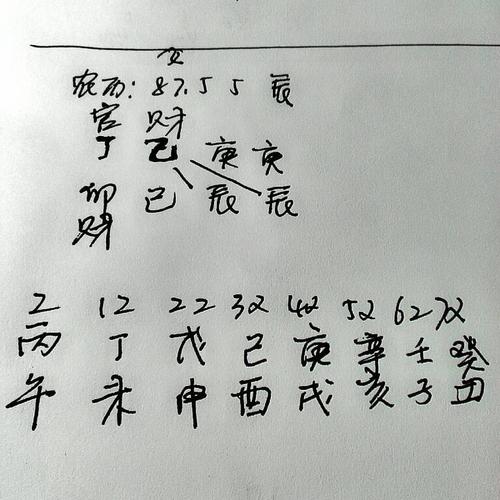 女
农历: 87.5 5 辰
官 财
丁 乙 庚 庚
卯 巳 辰 辰
财
2 12 22 32 42 52 62 72
丙 丁 戊 己 庚 辛 壬 癸
午 未 申 酉 戌 亥 子 丑